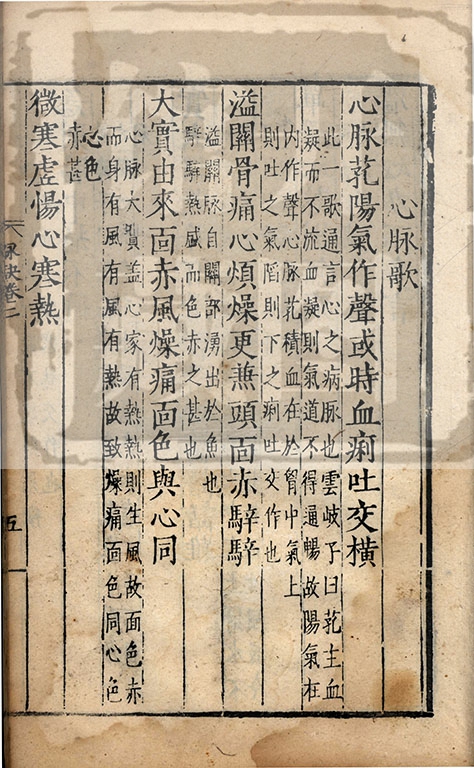 心脉歌
心脉芤陽氣作聲或時血痢吐交橫
此一歌通言心之病脉也雲岐子曰芤主血
凝而不流血凝則氣道不得通暢故陽氣在
内作聲心脉芤積血在於胷中氣上
則吐之氣䧟則下之痢吐交作也
溢關骨痛心煩燥更兼頭面赤騂騂
溢關脉自關部湧出於魚也
騂騂熱盛而色赤之甚也
大實由來面赤風燥痛面色與心同
心脉大實盖心家有熱熱則生風故面色赤
而身有風有風有熱故致燥痛面色同心色
心色
赤甚
微寒虛惕心寒熱
脉訣卷二
五